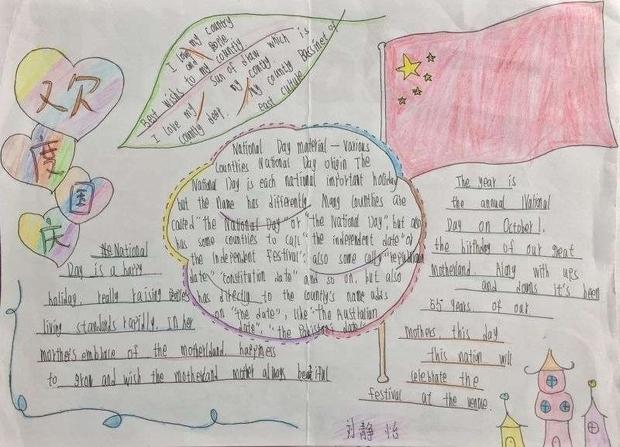 欢
度
国
庆
I love my country
and
to my country
Best wishs to my
sun of draw which is
I love my country
my country Bassinet of
country deep.
east culture
National Day material - Various
Countries National Day origin The
National Day is each national important holiday
but the name has differently. Many countries are
called "the National Day" or "the National Day", but also
has some countries to call "the independent date" or
"the Independent Festival", also some call "republican
date" "constitution date" and so on, but also
has directly to the country's name adds
on "the date", like "the Australian
date", "the Pakistani date"
The National
Day is a happy
holiday, really raising
living standards rapidly. In her
morther's embrace of the motherland happiness
to grow and wish the motherland mother always beautiful
The year is
the annual National
Day on October 1.
the birthday of our great
motherland. Along with ups
and downs it's been
65 years of our
mothers this day
this nation will
celebrate the
festival at the venue.
刘静怡